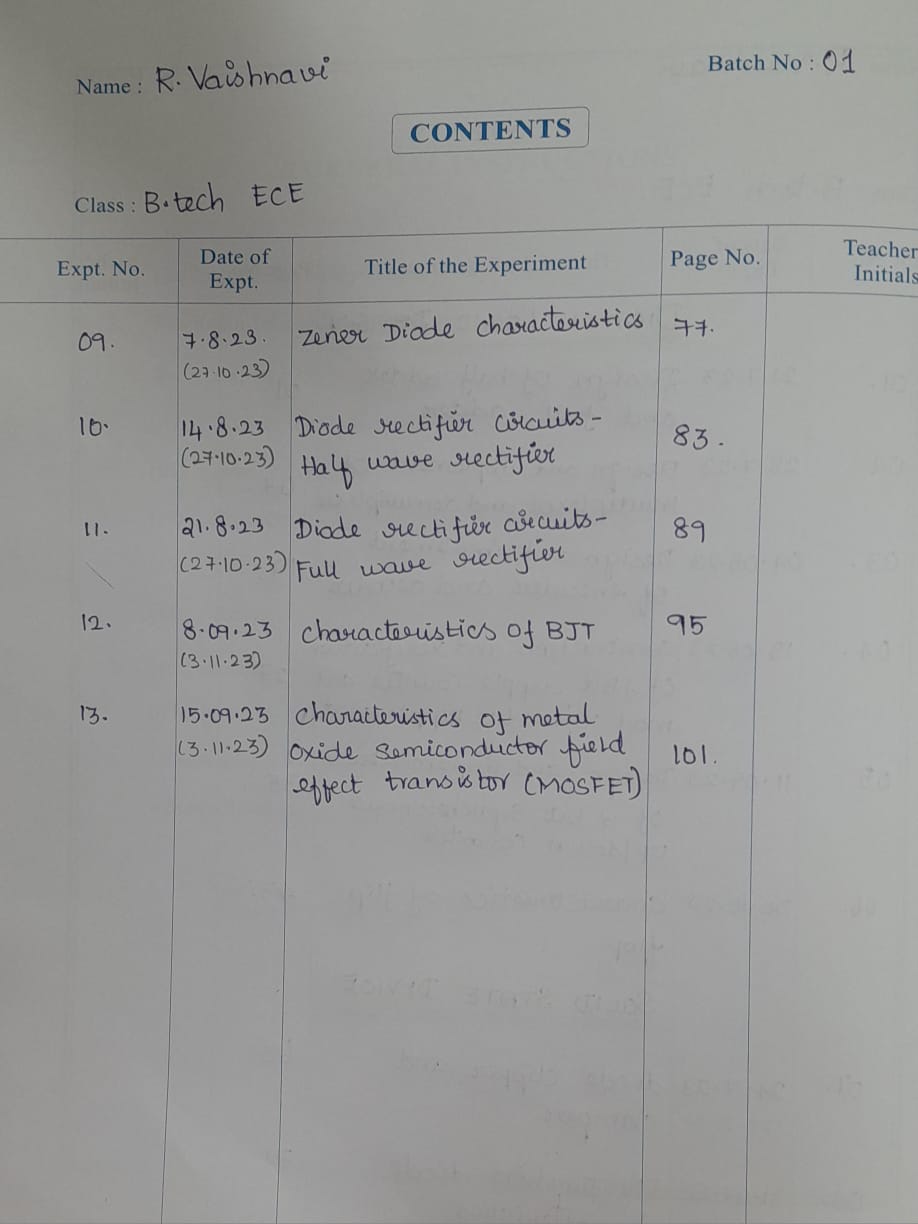 Name : R. Vaishnavi
Batch No : 01
CONTENTS
Class : B.tech ECE
Expt. No. Date of Expt. Title of the Experiment Page No. Teacher Initials
09. 7.8.23. Zener Diode characteristics 77.
(27.10.23)
10. 14.8.23 Diode rectifier circuits-
(27.10.23) Half wave rectifier 83.
11. 21.8.23 Diode rectifier circuits- 89
(27.10.23) Full wave rectifier
12. 8.09.23 characteristics of BJT 95
(3.11.23)
13. 15.09.23 characteristics of metal
(3.11.23) oxide semiconductor field 101.
effect transistor (MOSFET)